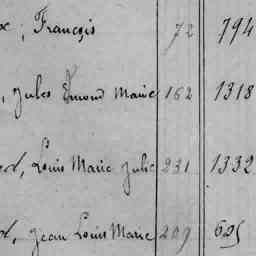 , François 72 794
, Jules Edmond Marie 162 1318
, Louis Marie Julie 231 1332
, Jean Louis Marie 209 605